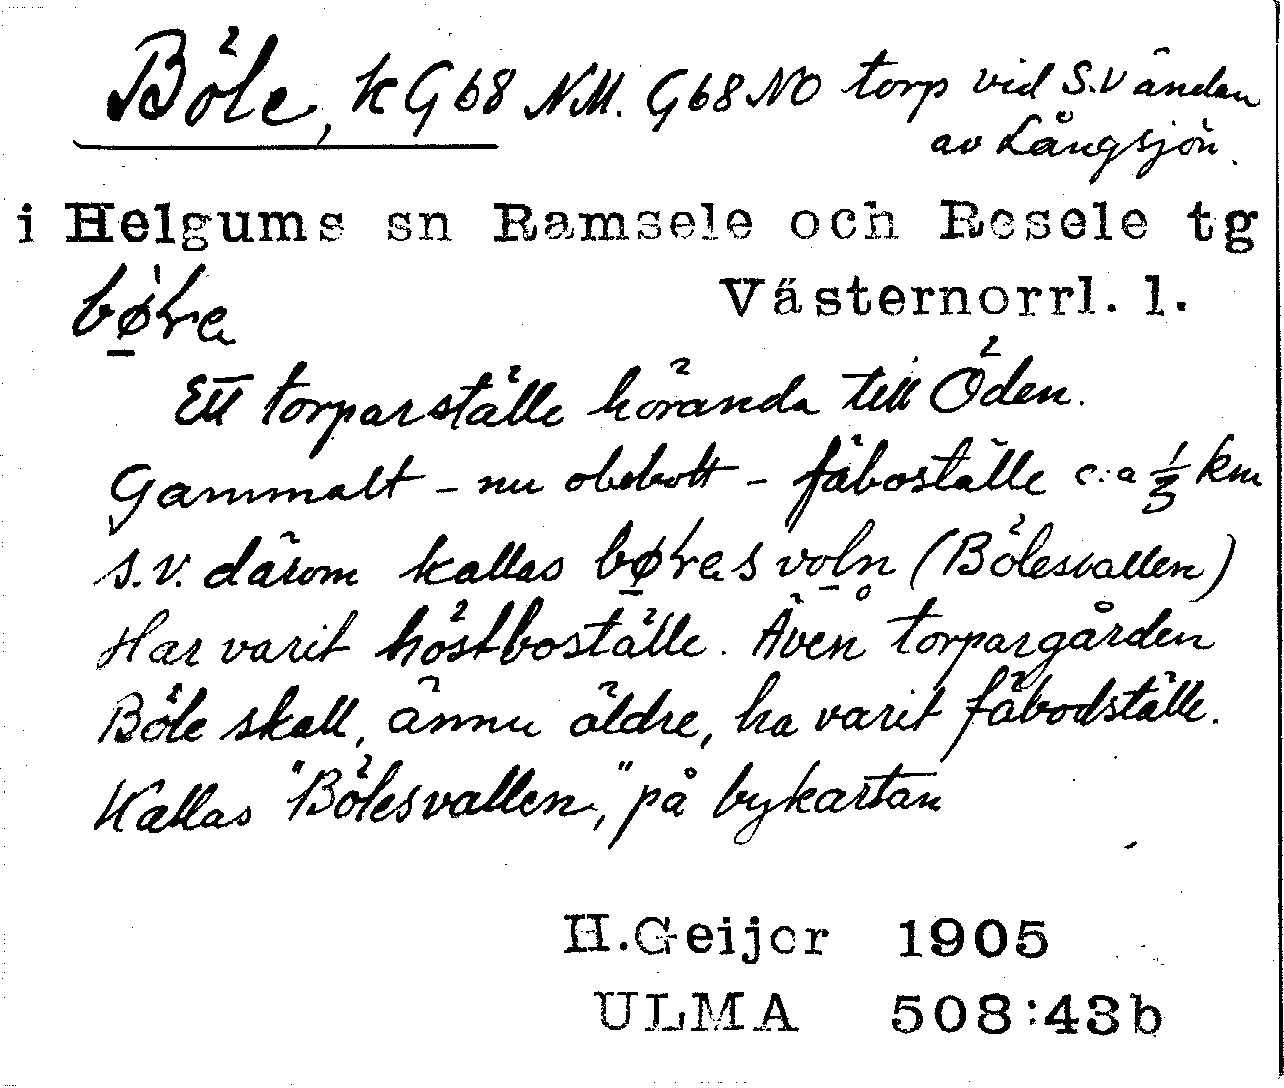 Böle, k G68 NM. G68NO torp vid S.V ändan
av Långsjön.
i Helgums sn Ramsele och Resele tg
Västernorrl. l.
Ett torparställe höranda till Öden.
Gammalt - nu obebott - fäboställe c:a 1/3 km
s.v. därom kallas (Bölesvallen)
Har varit höstboställe. Även torpargården
Böle skall, ännu äldre, ha varit fäbodställe.
Kallas "Bölesvallen," på bykartan
H.Geijer 1905
ULMA 508:43b